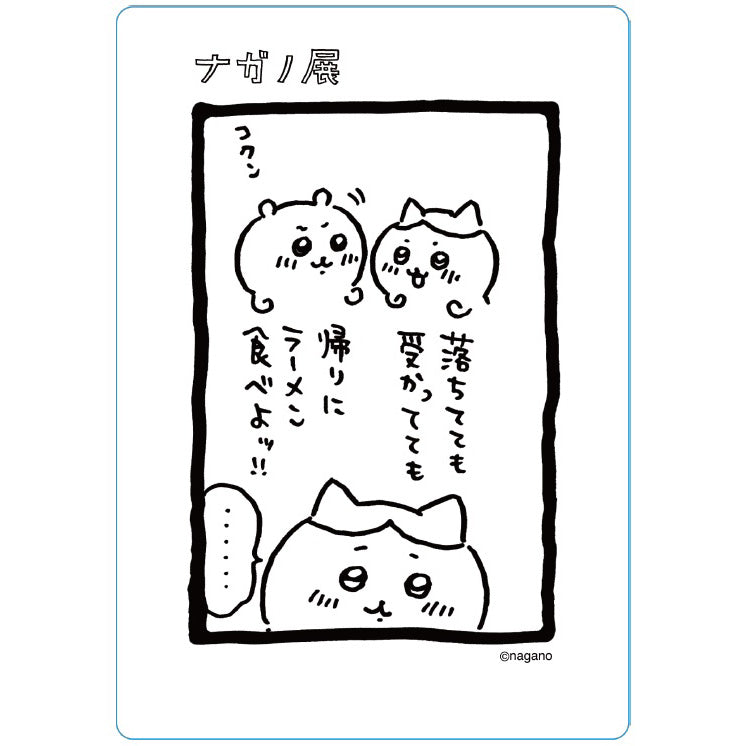 ナガノ展
コクン
落ちてても
受かってても
帰りに
ラーメン
食べよッ!!
・・・・・・
©nagano